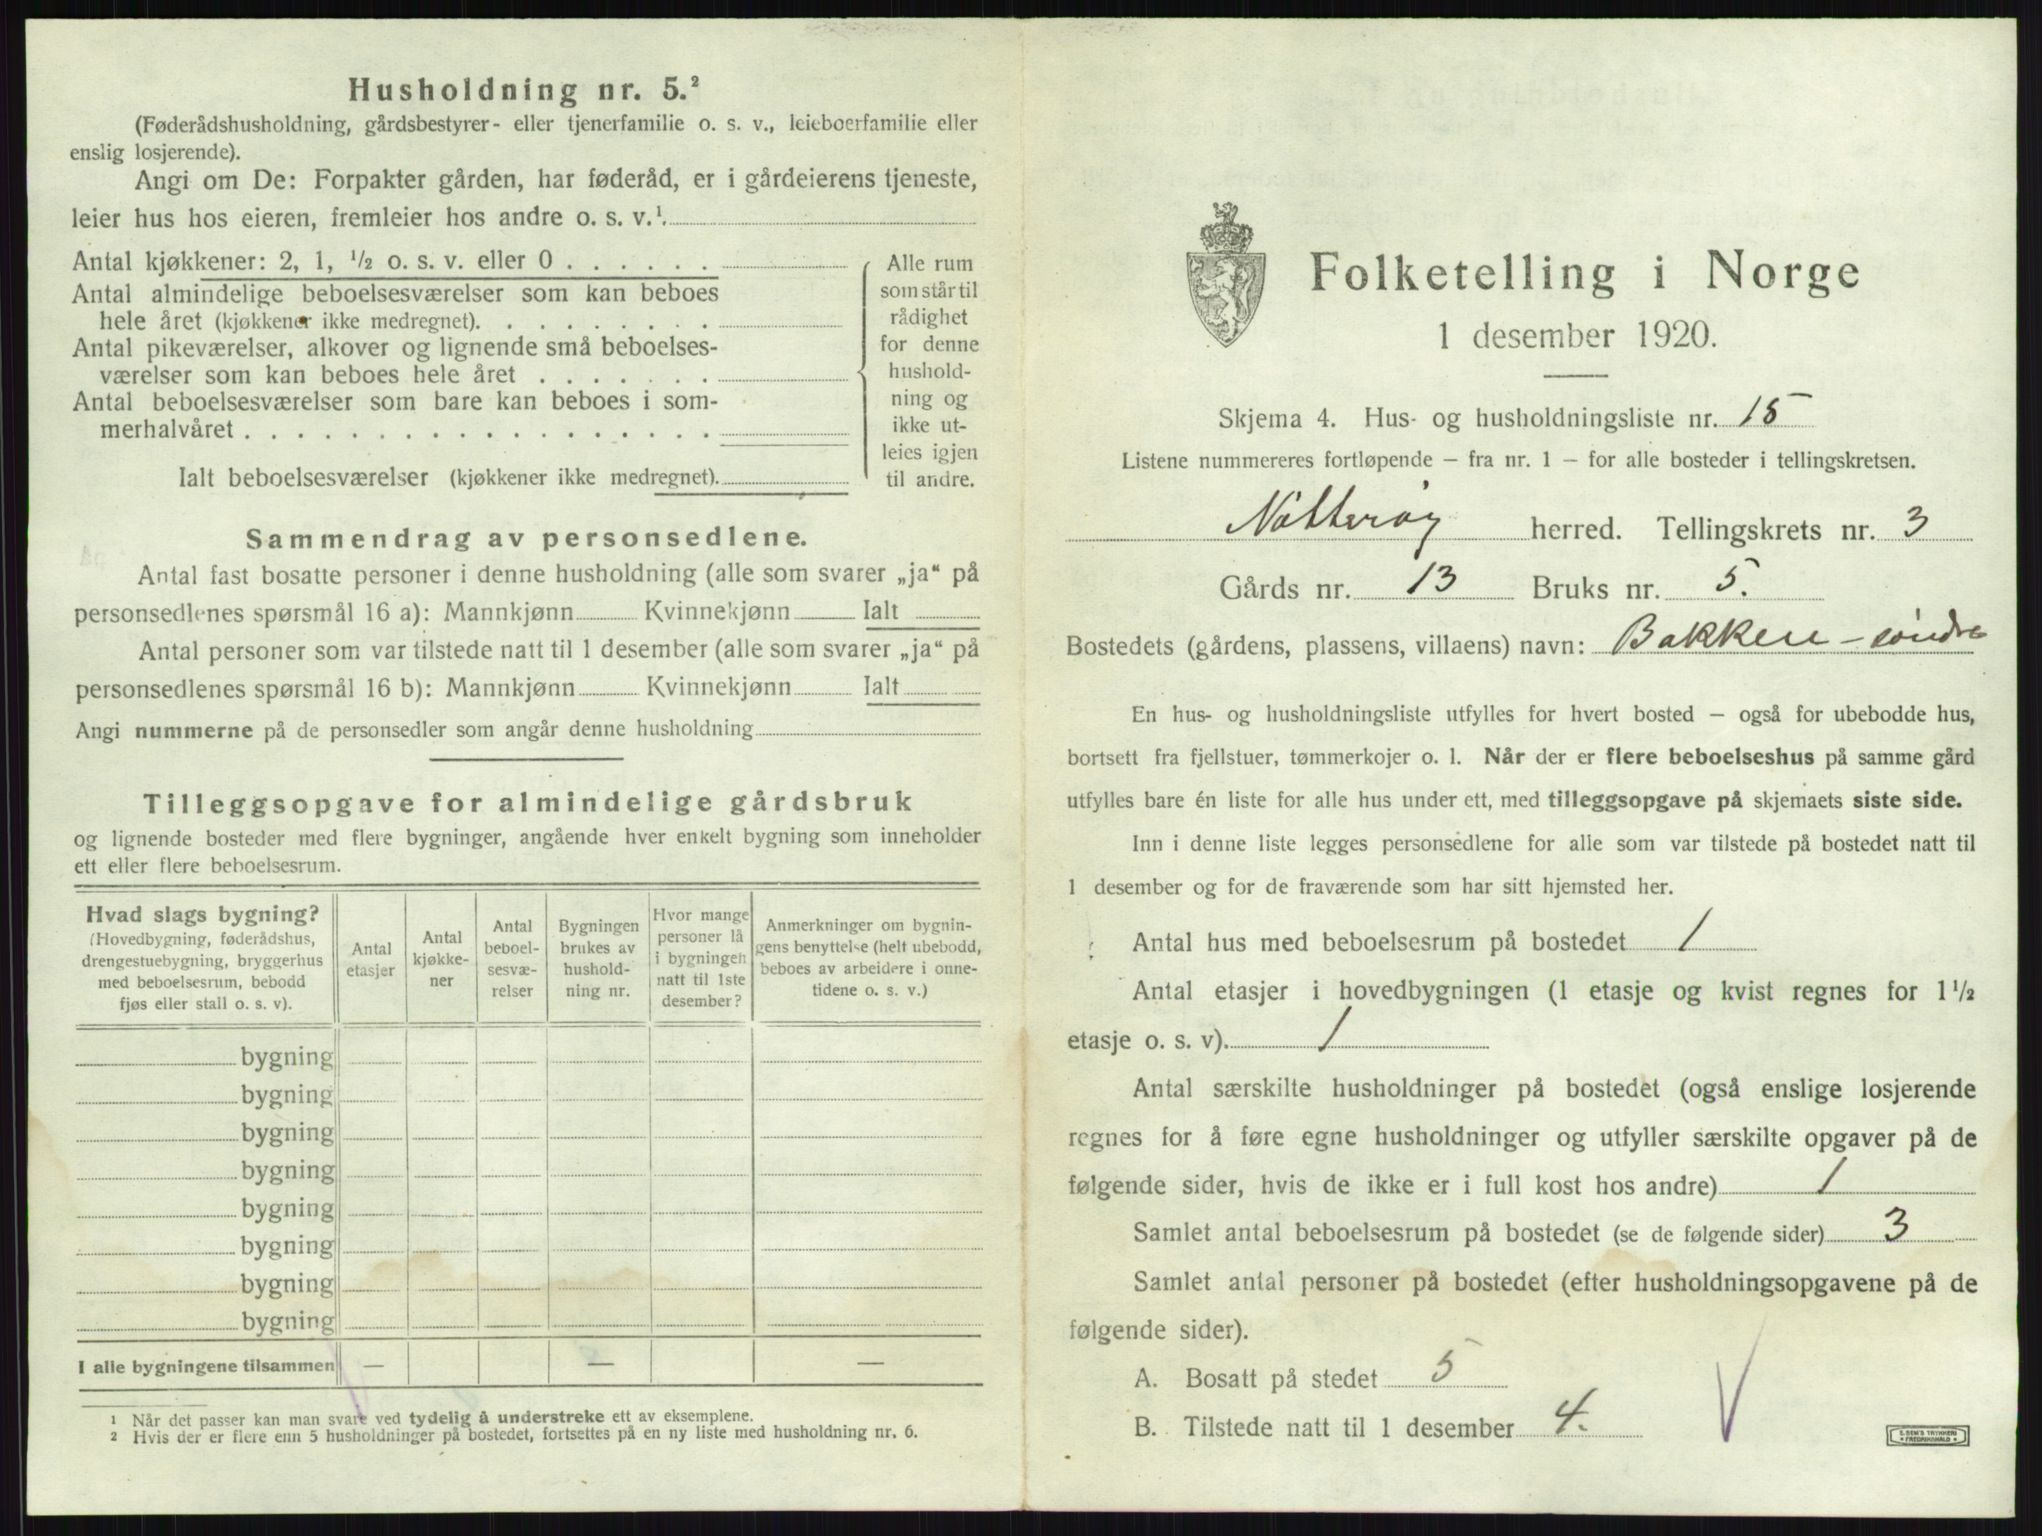 Husholdning nr. 5.²
(Føderådshusholdning, gårdsbestyrer- eller tjenerfamilie o. s. v., leieboerfamilie eller
enslig losjerende).
Angi om De: Forpakter gården, har føderåd, er i gårdeierens tjeneste,
leier hus hos eieren, fremleier hos andre o. s. v.¹.
Antal kjøkkener: 2, 1, ½ o. s. v. eller 0 . . . . . .
Antal almindelige beboelsesværelser som kan beboes
hele året (kjøkkener ikke medregnet). . . . . . . . .
Antal pikeværelser, alkover og lignende små beboelses-
værelser som kan beboes hele året . . . . . . .
Antal beboelsesværelser som bare kan beboes i som-
merhalvåret . . . . . . . . . . . . . . . . . .
Ialt beboelsesværelser (kjøkkener ikke medregnet).
Alle rum
som står til
rådighet
for denne
hushold-
ning og
ikke ut-
leies igjen
til andre.
Sammendrag av personsedlene.
Antal fast bosatte personer i denne husholdning (alle som svarer „ja“ på
personsedlenes spørsmål 16 a): Mannkjønn Kvinnekjønn Ialt
Antal personer som var tilstede natt til 1 desember (alle som svarer „ja“ på
personsedlenes spørsmål 16 b): Mannkjønn Kvinnekjønn Ialt
Angi nummerne på de personsedler som angår denne husholdning
Tilleggsopgave for almindelige gårdsbruk
og lignende bosteder med flere bygninger, angående hver enkelt bygning som inneholder
ett eller flere beboelsesrum.
Hvad slags bygning?
(Hovedbygning, føderådshus,
drengestuebygning, bryggerhus
med beboelsesrum, bebodd
fjøs eller stall o. s. v).
Antal
etasjer
Antal
kjøkke-
ner
Antal
beboel-
sesvæ-
relser
Bygningen
brukes av
hushold-
ning nr.
Hvor mange
personer lå
i bygningen
natt til 1ste
desember?
Anmerkninger om bygnin-
gens benyttelse (helt ubebodd,
beboes av arbeidere i onne-
tidene o. s. v.)
bygning
bygning
bygning
bygning
bygning
bygning
bygning
bygning
I alle bygningene tilsammen — — —
¹ Når det passer kan man svare ved tydelig å understreke ett av eksemplene.
² Hvis der er flere enn 5 husholdninger på bostedet, fortsettes på en ny liste med husholdning nr. 6.
Folketelling i Norge
1 desember 1920.
Skjema 4. Hus- og husholdningsliste nr. 15
Listene nummereres fortløpende – fra nr. 1 – for alle bosteder i tellingskretsen.
Nøtterøy herred. Tellingskrets nr. 3
Gårds nr. 13 Bruks nr. 5.
Bostedets (gårdens, plassens, villaens) navn: Bakken – søndre
En hus- og husholdningsliste utfylles for hvert bosted – også for ubebodde hus,
bortsett fra fjellstuer, tømmerkojer o. l. Når der er flere beboelseshus på samme gård
utfylles bare én liste for alle hus under ett, med tilleggsopgave på skjemaets siste side.
Inn i denne liste legges personsedlene for alle som var tilstede på bostedet natt til
1 desember og for de fraværende som har sitt hjemsted her.
Antal hus med beboelsesrum på bostedet 1
Antal etasjer i hovedbygningen (1 etasje og kvist regnes for 1½
etasje o. s. v). 1
Antal særskilte husholdninger på bostedet (også enslige losjerende
regnes for å føre egne husholdninger og utfyller særskilte opgaver på de
følgende sider, hvis de ikke er i full kost hos andre) 1
Samlet antal beboelsesrum på bostedet (se de følgende sider) 3
Samlet antal personer på bostedet (efter husholdningsopgavene på de
følgende sider).
A. Bosatt på stedet 5
B. Tilstede natt til 1 desember 4.
E. SEM'S TRYKKERI
FREDRIKSHALD